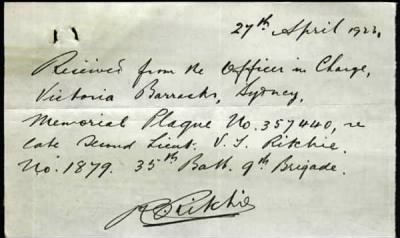 27th April 1923,
Received from the Officer in Charge,
Victoria Barracks, Sydney,
Memorial Plaque No. 357440, re
late Second Lieut. V. S. Ritchie.
No. 1879. 35th Batt. 9th Brigade.
Ritchie